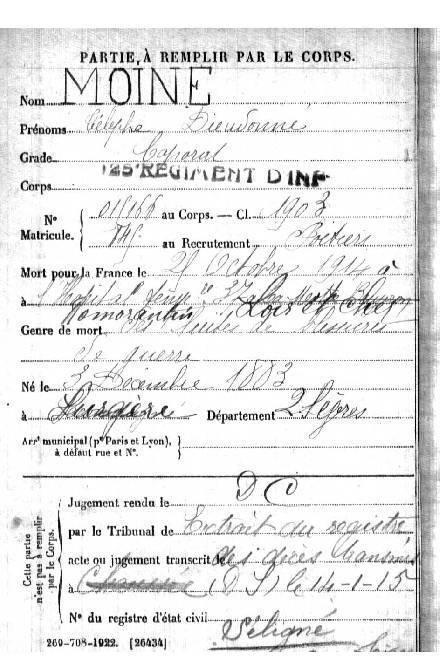 PARTIE, À REMPLIR PAR LE CORPS.
Nom MOINE
Prénoms Dieudonné
Grade Caporal
Corps 125e REGIMENT D'INF
N° Matricule. { 011166 au Corps. — Cl. 1903
au Recrutement Poitiers
Mort pour la France le 21 Octobre 1914 à
à l'Hôpital 37
Romorantin Loir et Cher
Genre de mort Suites de blessures
de guerre
Né le 3 Décembre 1883
à Département 2 Sèvres
Arrt municipal (pr Paris et Lyon), }
à défaut rue et N°.
Cette partie n'est pas à remplir par le Corps.
Jugement rendu le D C
par le Tribunal de Extrait du registre
acte ou jugement transcrit le des décès transmis
à (D S) le 14-1-15
N° du registre d'état civil
Séligné
269-708-1922. [26434]